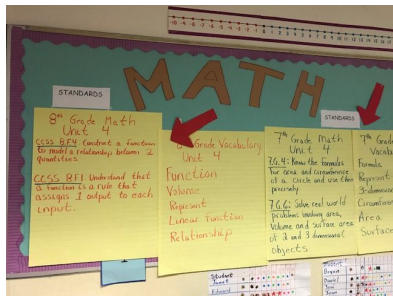 MATH
STANDARDS
8th Grade Math
Unit 4
CCSS 8.F.4: Construct a function
to model a relationship between 2
quantities.
CCSS 8.F.1: Understand that
a function is a rule that
assigns 1 output to each
input.
Grade Vocabulary
Unit 4
Function
Volume
Represent
Linear Function
Relationship
STANDARDS
7th Grade Math
Unit 4
7.G.4: Know the formulas
for area and circumference
of a circle and use them
precisely
7.G.6: Solve real world
problems involving area,
Volume and surface area
of 2 and 3 dimensional
objects
7th Grade
Vocab
Formula
Represent
3-dimens
Circumferen
Area
Surface
Student
Janet
Edward
Student
Bryan
Daniel